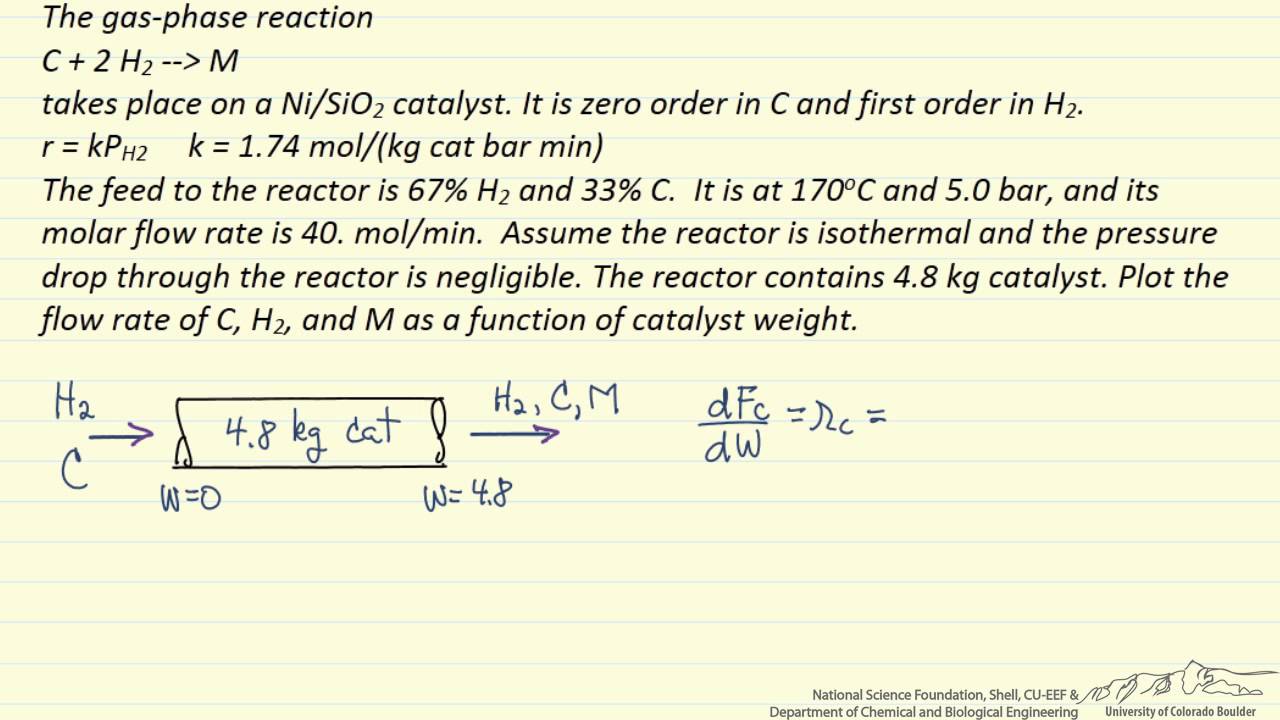 The gas-phase reaction
C + 2 H₂ --> M
takes place on a Ni/SiO₂ catalyst. It is zero order in C and first order in H₂.
r = kP_H2 k = 1.74 mol/(kg cat bar min)
The feed to the reactor is 67% H₂ and 33% C. It is at 170°C and 5.0 bar, and its
molar flow rate is 40. mol/min. Assume the reactor is isothermal and the pressure
drop through the reactor is negligible. The reactor contains 4.8 kg catalyst. Plot the
flow rate of C, H₂, and M as a function of catalyst weight.
H₂
C
4.8 kg cat
W=0
W=4.8
H₂, C, M
dF_C/dW = r_C =
National Science Foundation, Shell, CU-EEF &
Department of Chemical and Biological Engineering
University of Colorado Boulder